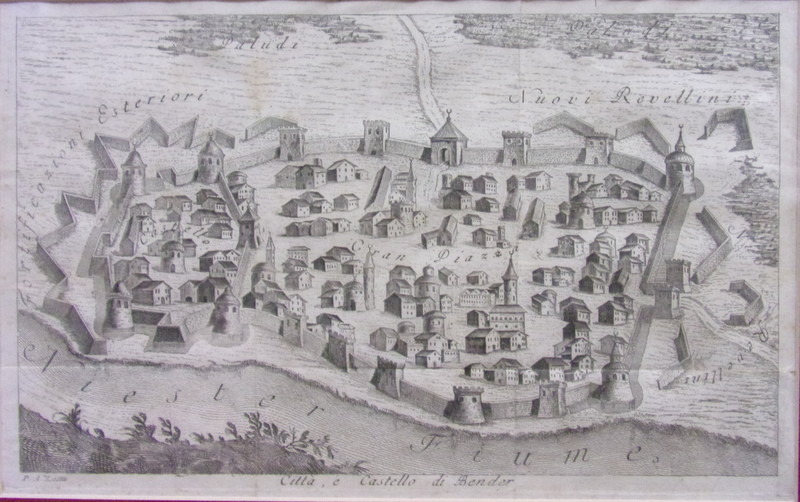 Paludi
Paludi
Fortificazioni Esteriori
Nuovi Rovellini
Gran Piazza
Niester Fiume
Città, e Castello di Bender